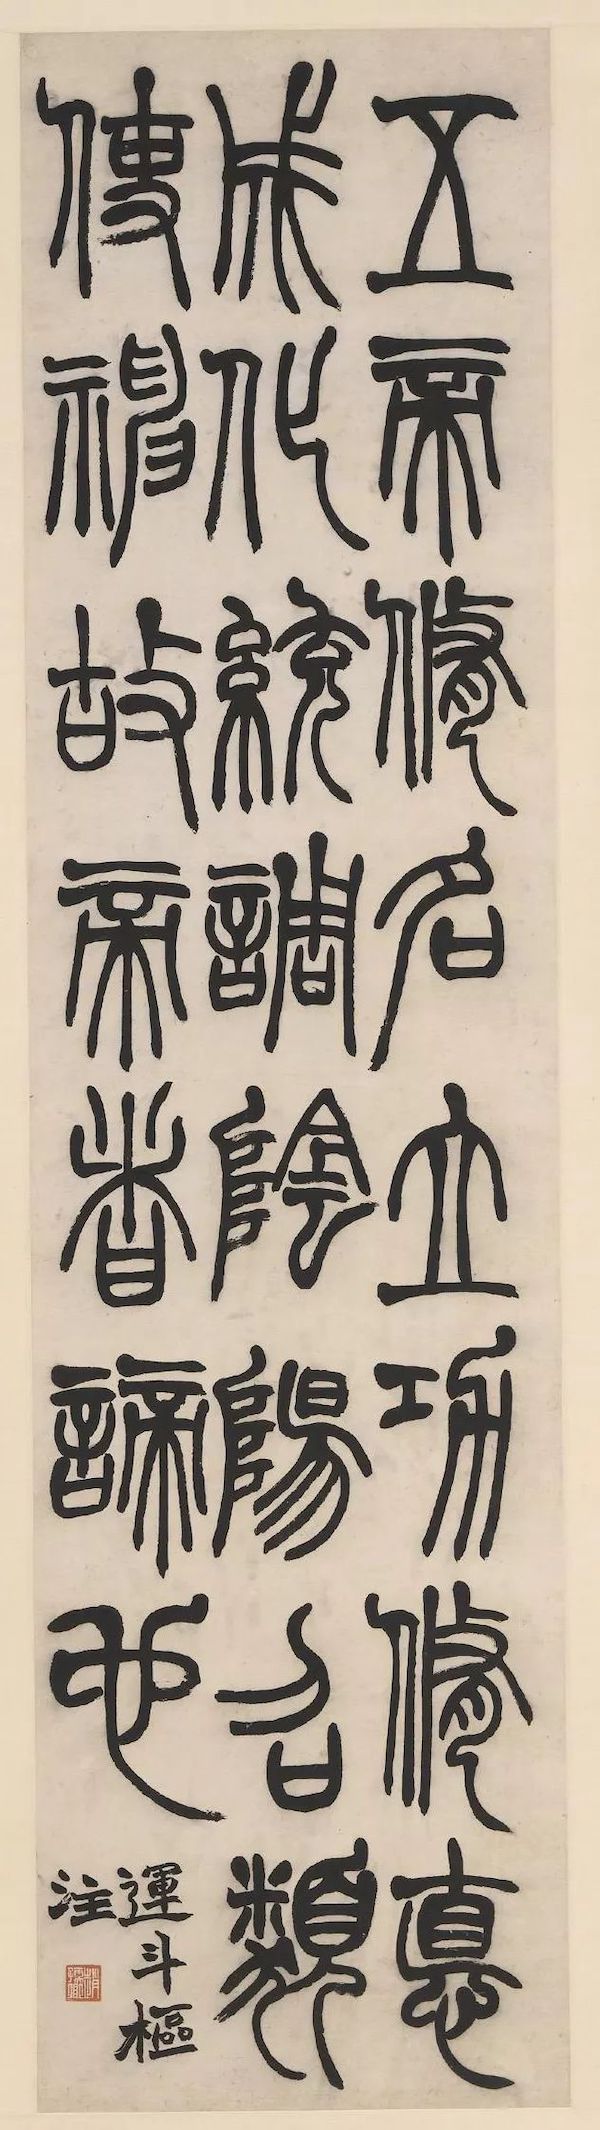 五帝脩名立功脩悳
成化統調陰陽召類
使神故帝者諦也
運斗樞
注